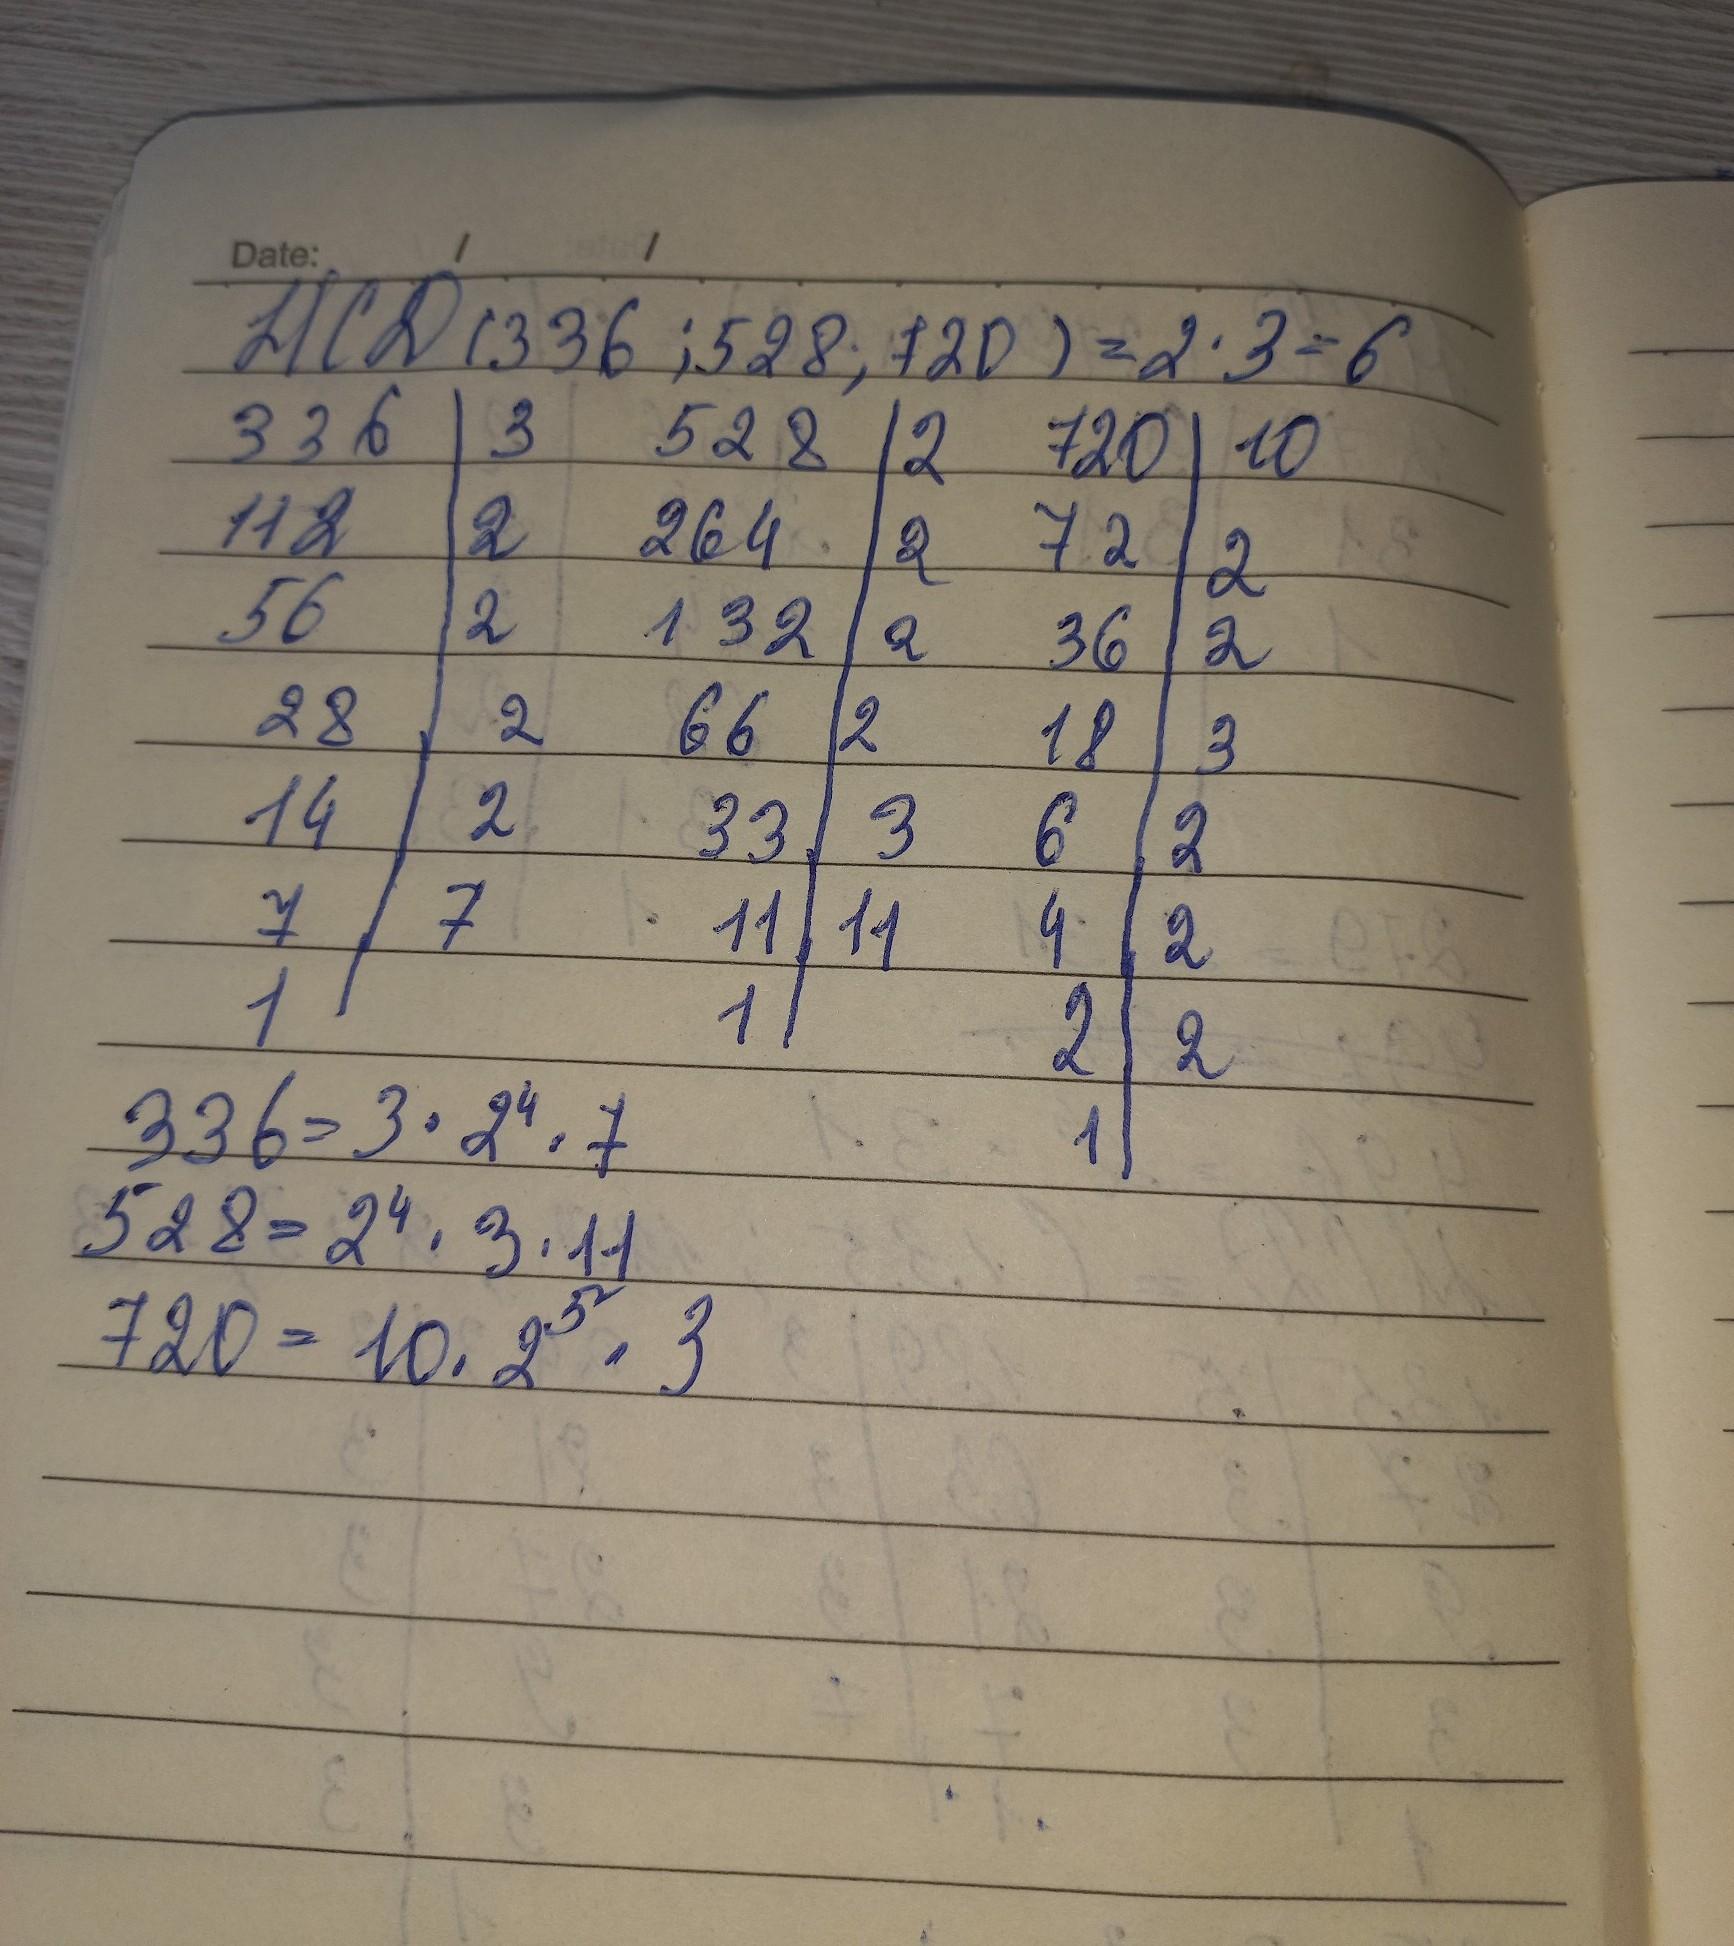 Date: / /
НСД (336 ; 528; 720) = 2 · 3 = 6
336 | 3 528 | 2 720 | 10
112 | 2 264 | 2 72 | 2
56 | 2 132 | 2 36 | 2
28 | 2 66 | 2 18 | 3
14 | 2 33 | 3 6 | 2
7 | 7 11 | 11 4 | 2
1 | 1 | 2 | 2
1 |
336 = 3 · 2⁴ · 7
528 = 2⁴ · 3 · 11
720 = 10 · 2⁵ · 3